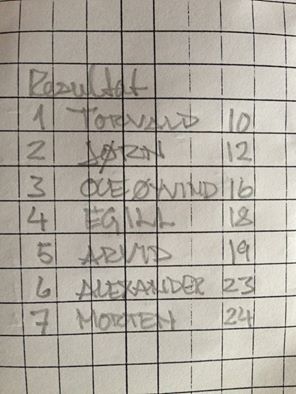 Resultat
1 TORVALD 10
2 JØRN 12
3 OLE ØYVIND 16
4 EGILL 18
5 ARVID 19
6 ALEXANDER 23
7 MORTEN 24